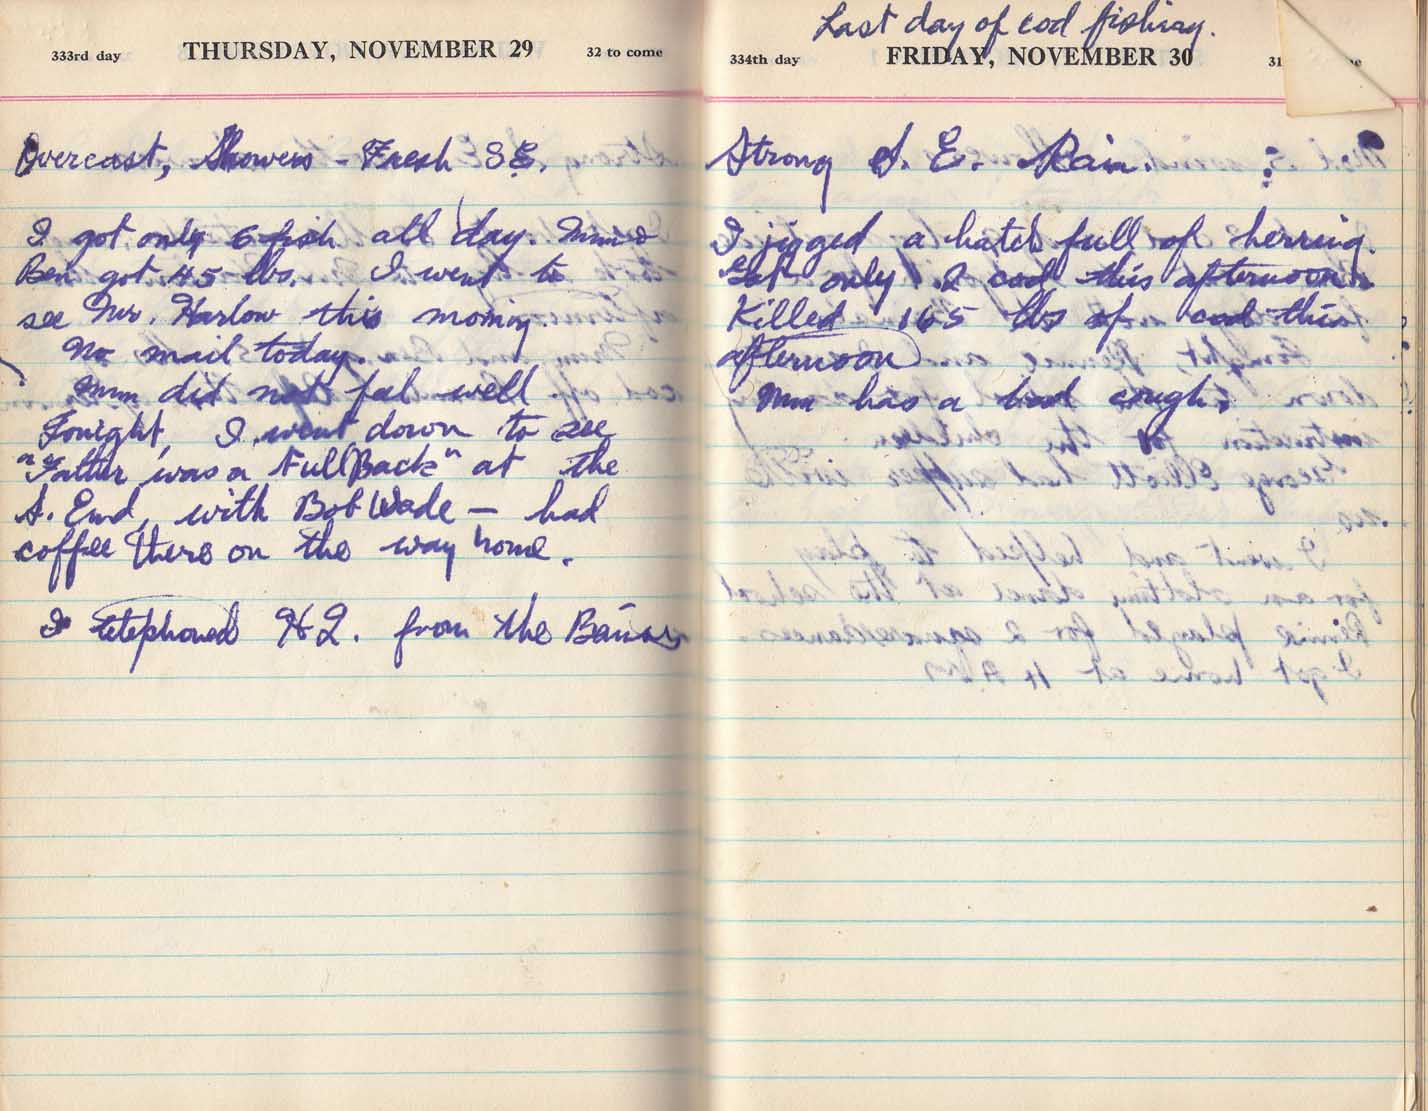 333rd day THURSDAY, NOVEMBER 29 32 to come
Overcast, Showers - Fresh SE.
I got only 6 fish all day. Mum &
Ben got 45 lbs. I went to
see Mr. Harlow this morning.
No mail today.
Mum did not feel well
Tonight, I went down to see
"Father was a Full Back" at the
S. End, with Bob Wade — had
coffee there on the way home.
I telephoned from the
Last day of cod fishing.
334th day FRIDAY, NOVEMBER 30 31
Strong S. E. Rain.
I jigged a hatch full of herring.
Got only 2 cod this afternoon.
Killed 165 lbs of cod this
afternoon
Mum has a bad cough.